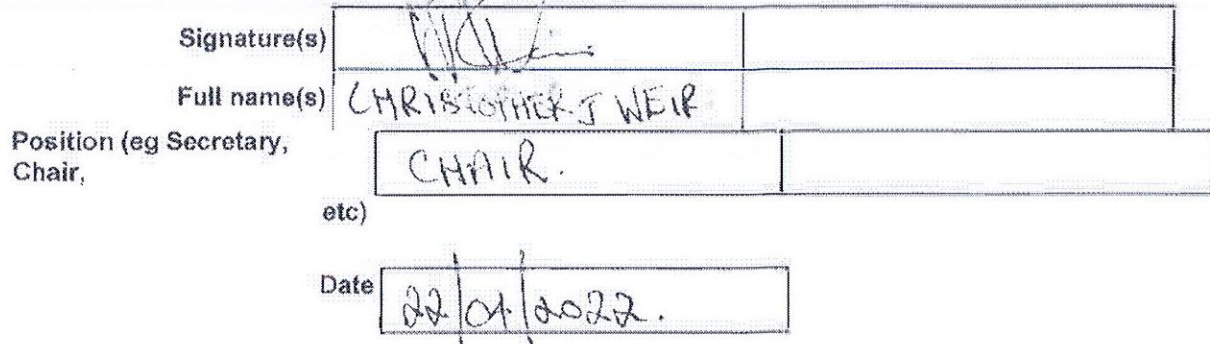 Signature(s)
Full name(s) CHRISTOPHER J WEIR
Position (eg Secretary,
Chair, CHAIR.
etc)
Date 22/04/2022.